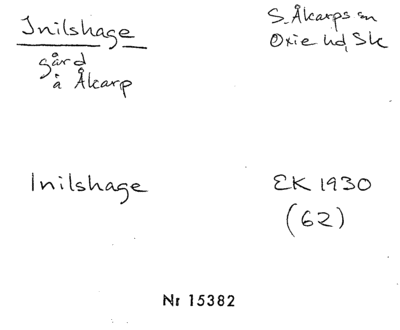 Inilshage
gård
å Åkarp
S. Åkarps sn
Oxie hd, Sk
Inilshage
EK 1930
(62)
Nr 15382